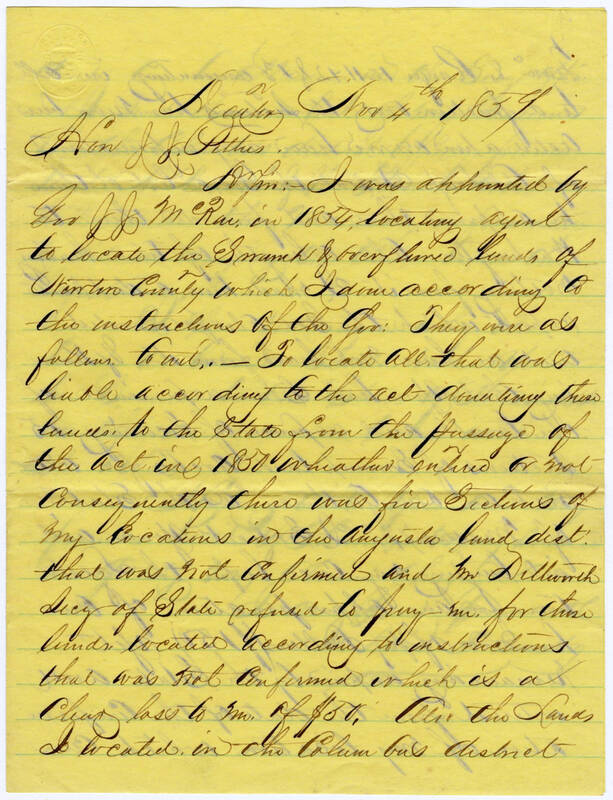 Decatur Nov 4th 1859
Hon J. J. Pettus.
Dr Sir:— I was appointed by
Gov J J McRae, in 1854, locating agent
to locate the Swamp & overflowed lands of
Newton County which I done according to
the instructions of the Gov: They were as
follows to wit,.— To locate all that was
liable according to the act donating these
lands to the State from the passage of
the act in 1850 wheather entired or not
Consequently there was five Sections of
my locations in the Augusta land dist.
that was not Confirmed and Mr Dillworth
Secy of State refused to pay me for those
lands located according to instructions
that was not Confirmed which is a
Clear loss to me of $50. Also the Lands
I located in the Columbus district